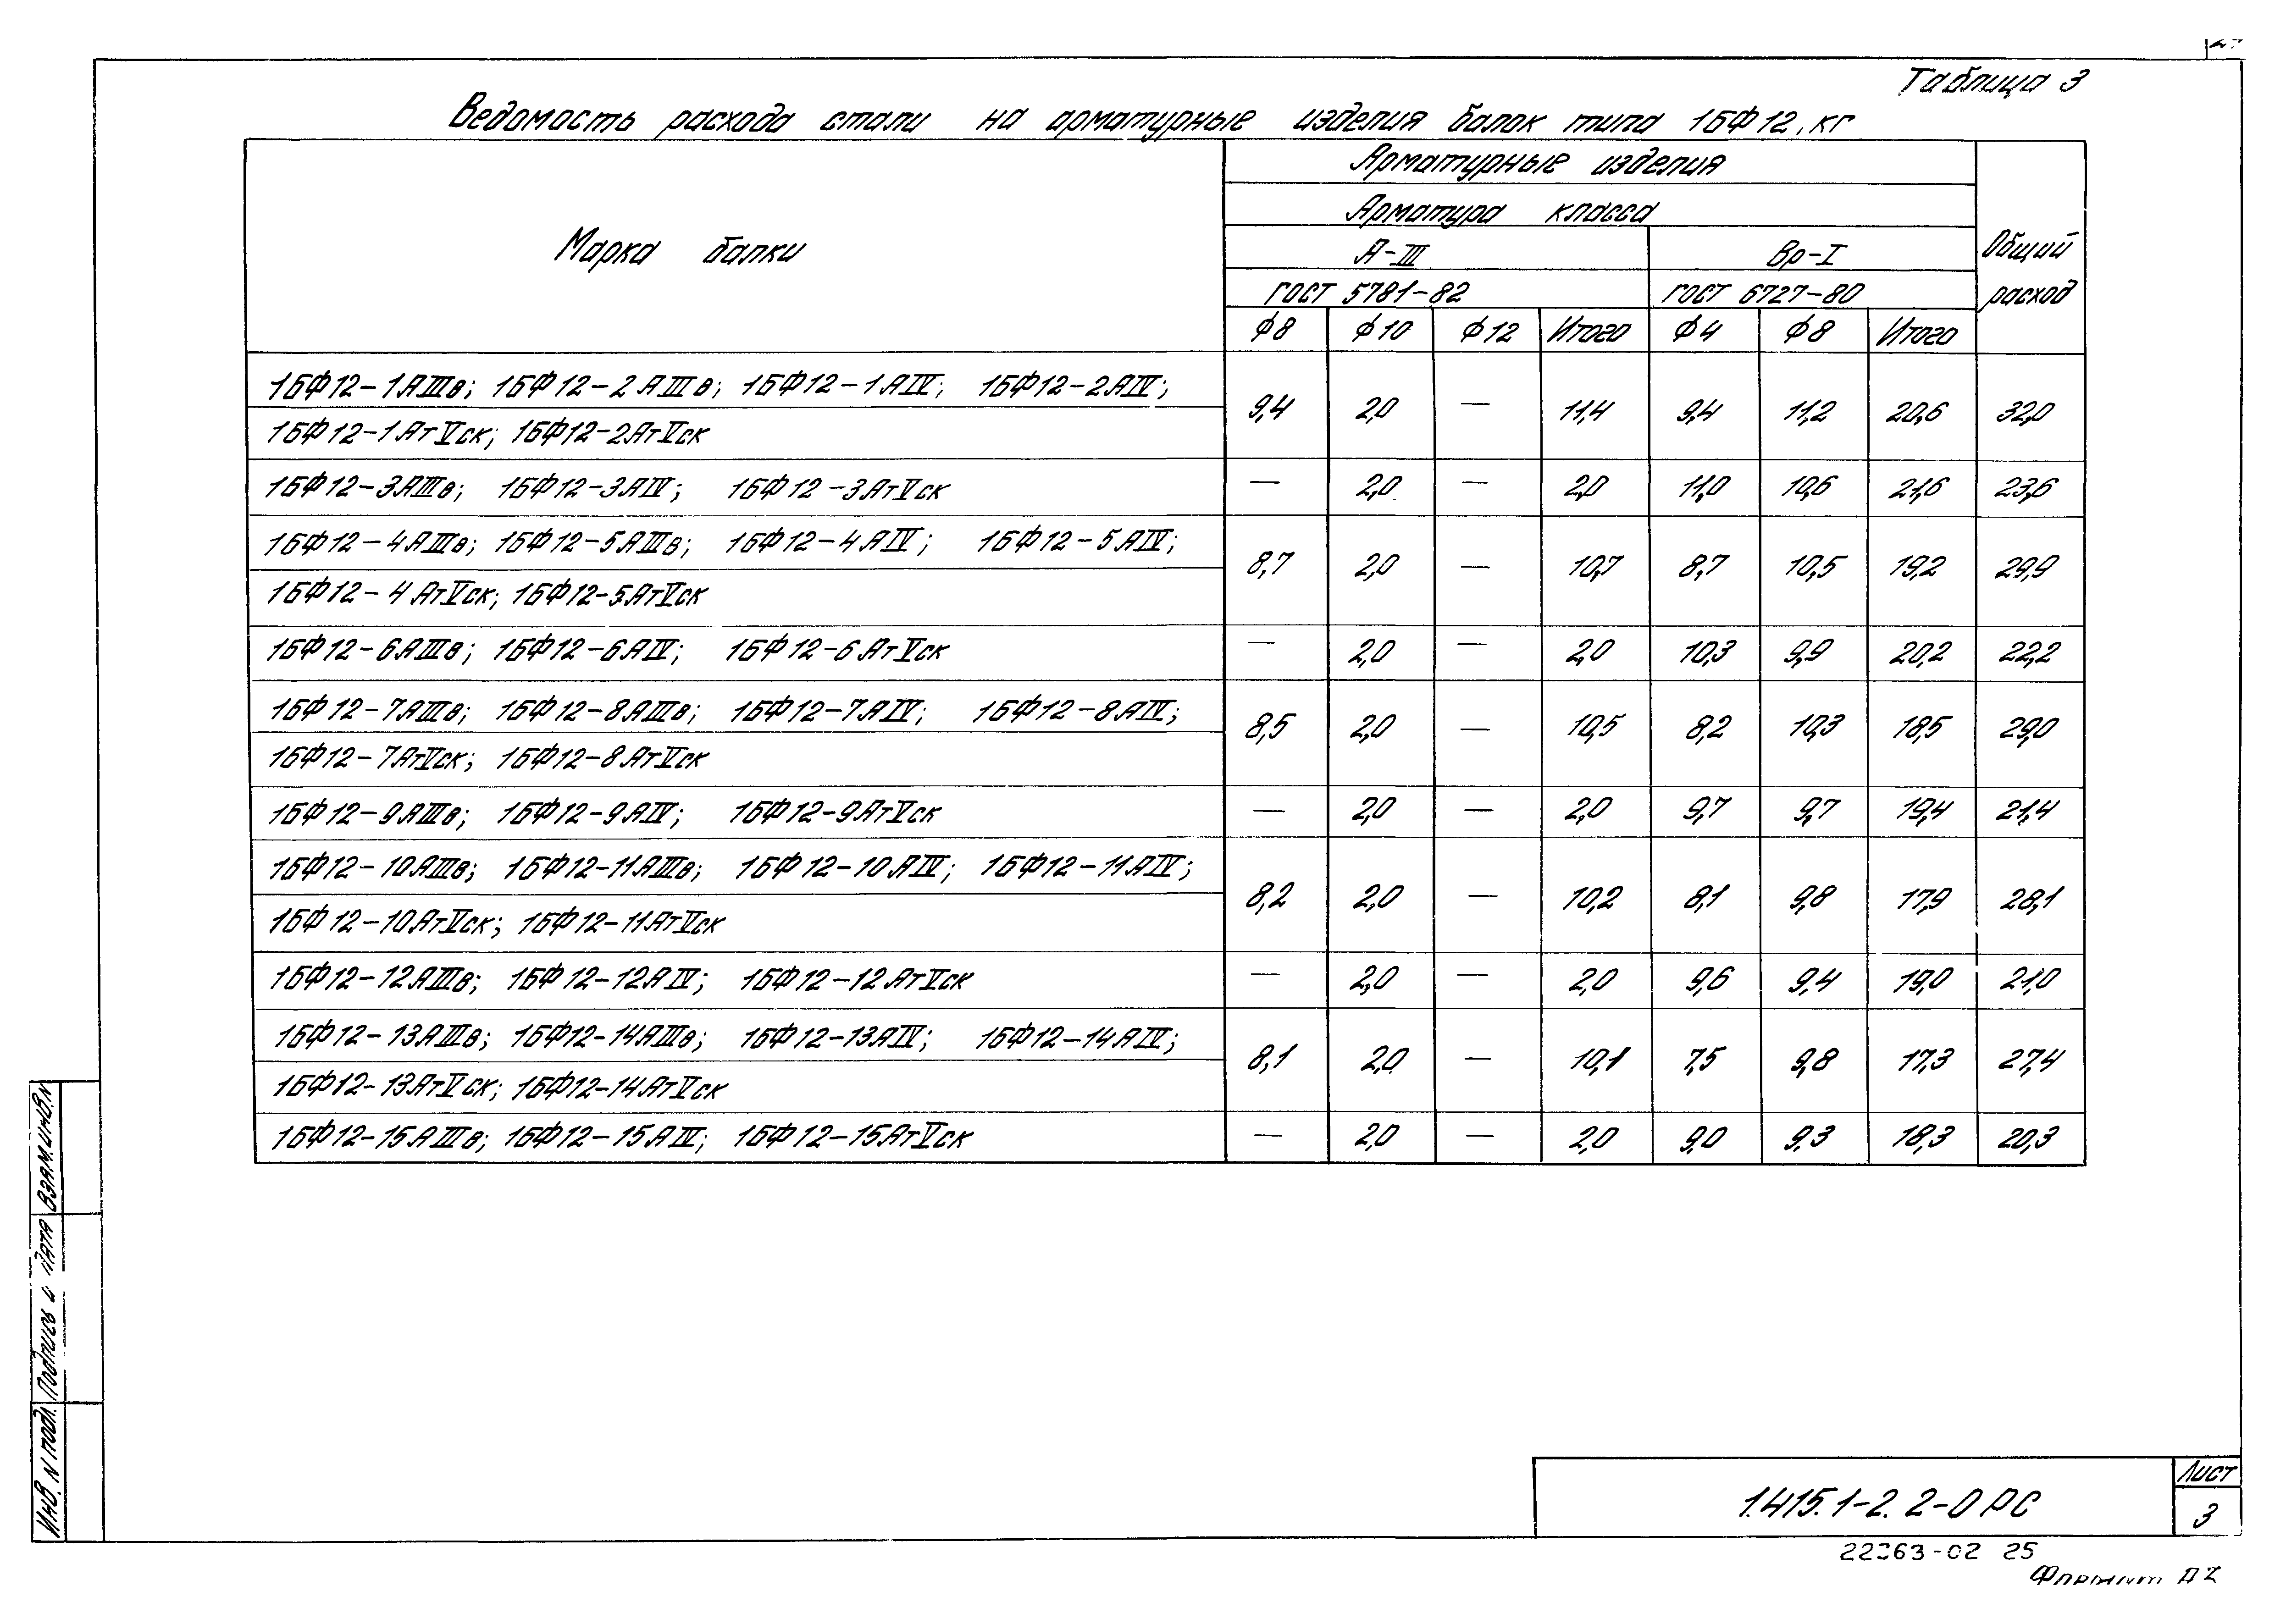 Таблица 3
Ведомость расхода стали на арматурные изделия балок типа 1БФ12, кг
Марка балки
Арматурные изделия
Общий расход
Арматура класса
А-III Вр-I
ГОСТ 5781-82 ГОСТ 6727-80
Ф8 Ф10 Ф12 Итого Ф4 Ф8 Итого
1БФ12-1АIIIв; 1БФ12-2АIIIв; 1БФ12-1АIV; 1БФ12-2АIV;
1БФ12-1АтVск; 1БФ12-2АтVск
9,4 2,0 — 11,4 9,4 11,2 20,6 32,0
1БФ12-3АIIIв; 1БФ12-3АIV; 1БФ12-3АтVск — 2,0 — 2,0 11,0 10,6 21,6 23,6
1БФ12-4АIIIв; 1БФ12-5АIIIв; 1БФ12-4АIV; 1БФ12-5АIV;
1БФ12-4АтVск; 1БФ12-5АтVск
8,7 2,0 — 10,7 8,7 10,5 19,2 29,9
1БФ12-6АIIIв; 1БФ12-6АIV; 1БФ12-6АтVск — 2,0 — 2,0 10,3 9,9 20,2 22,2
1БФ12-7АIIIв; 1БФ12-8АIIIв; 1БФ12-7АIV; 1БФ12-8АIV;
1БФ12-7АтVск; 1БФ12-8АтVск
8,5 2,0 — 10,5 8,2 10,3 18,5 29,0
1БФ12-9АIIIв; 1БФ12-9АIV; 1БФ12-9АтVск — 2,0 — 2,0 9,7 9,7 19,4 21,4
1БФ12-10АIIIв; 1БФ12-11АIIIв; 1БФ12-10АIV; 1БФ12-11АIV;
1БФ12-10АтVск; 1БФ12-11АтVск
8,2 2,0 — 10,2 8,1 9,8 17,9 28,1
1БФ12-12АIIIв; 1БФ12-12АIV; 1БФ12-12АтVск — 2,0 — 2,0 9,6 9,4 19,0 21,0
1БФ12-13АIIIв; 1БФ12-14АIIIв; 1БФ12-13АIV; 1БФ12-14АIV;
1БФ12-13АтVск; 1БФ12-14АтVск
8,1 2,0 — 10,1 7,5 9,8 17,3 27,4
1БФ12-15АIIIв; 1БФ12-15АIV; 1БФ12-15АтVск — 2,0 — 2,0 9,0 9,3 18,3 20,3
Инв. N подл. Подпись и дата Взам.инв.N
1.415.1-2.2-0 РС
Лист
3
22363-02 25
Формат